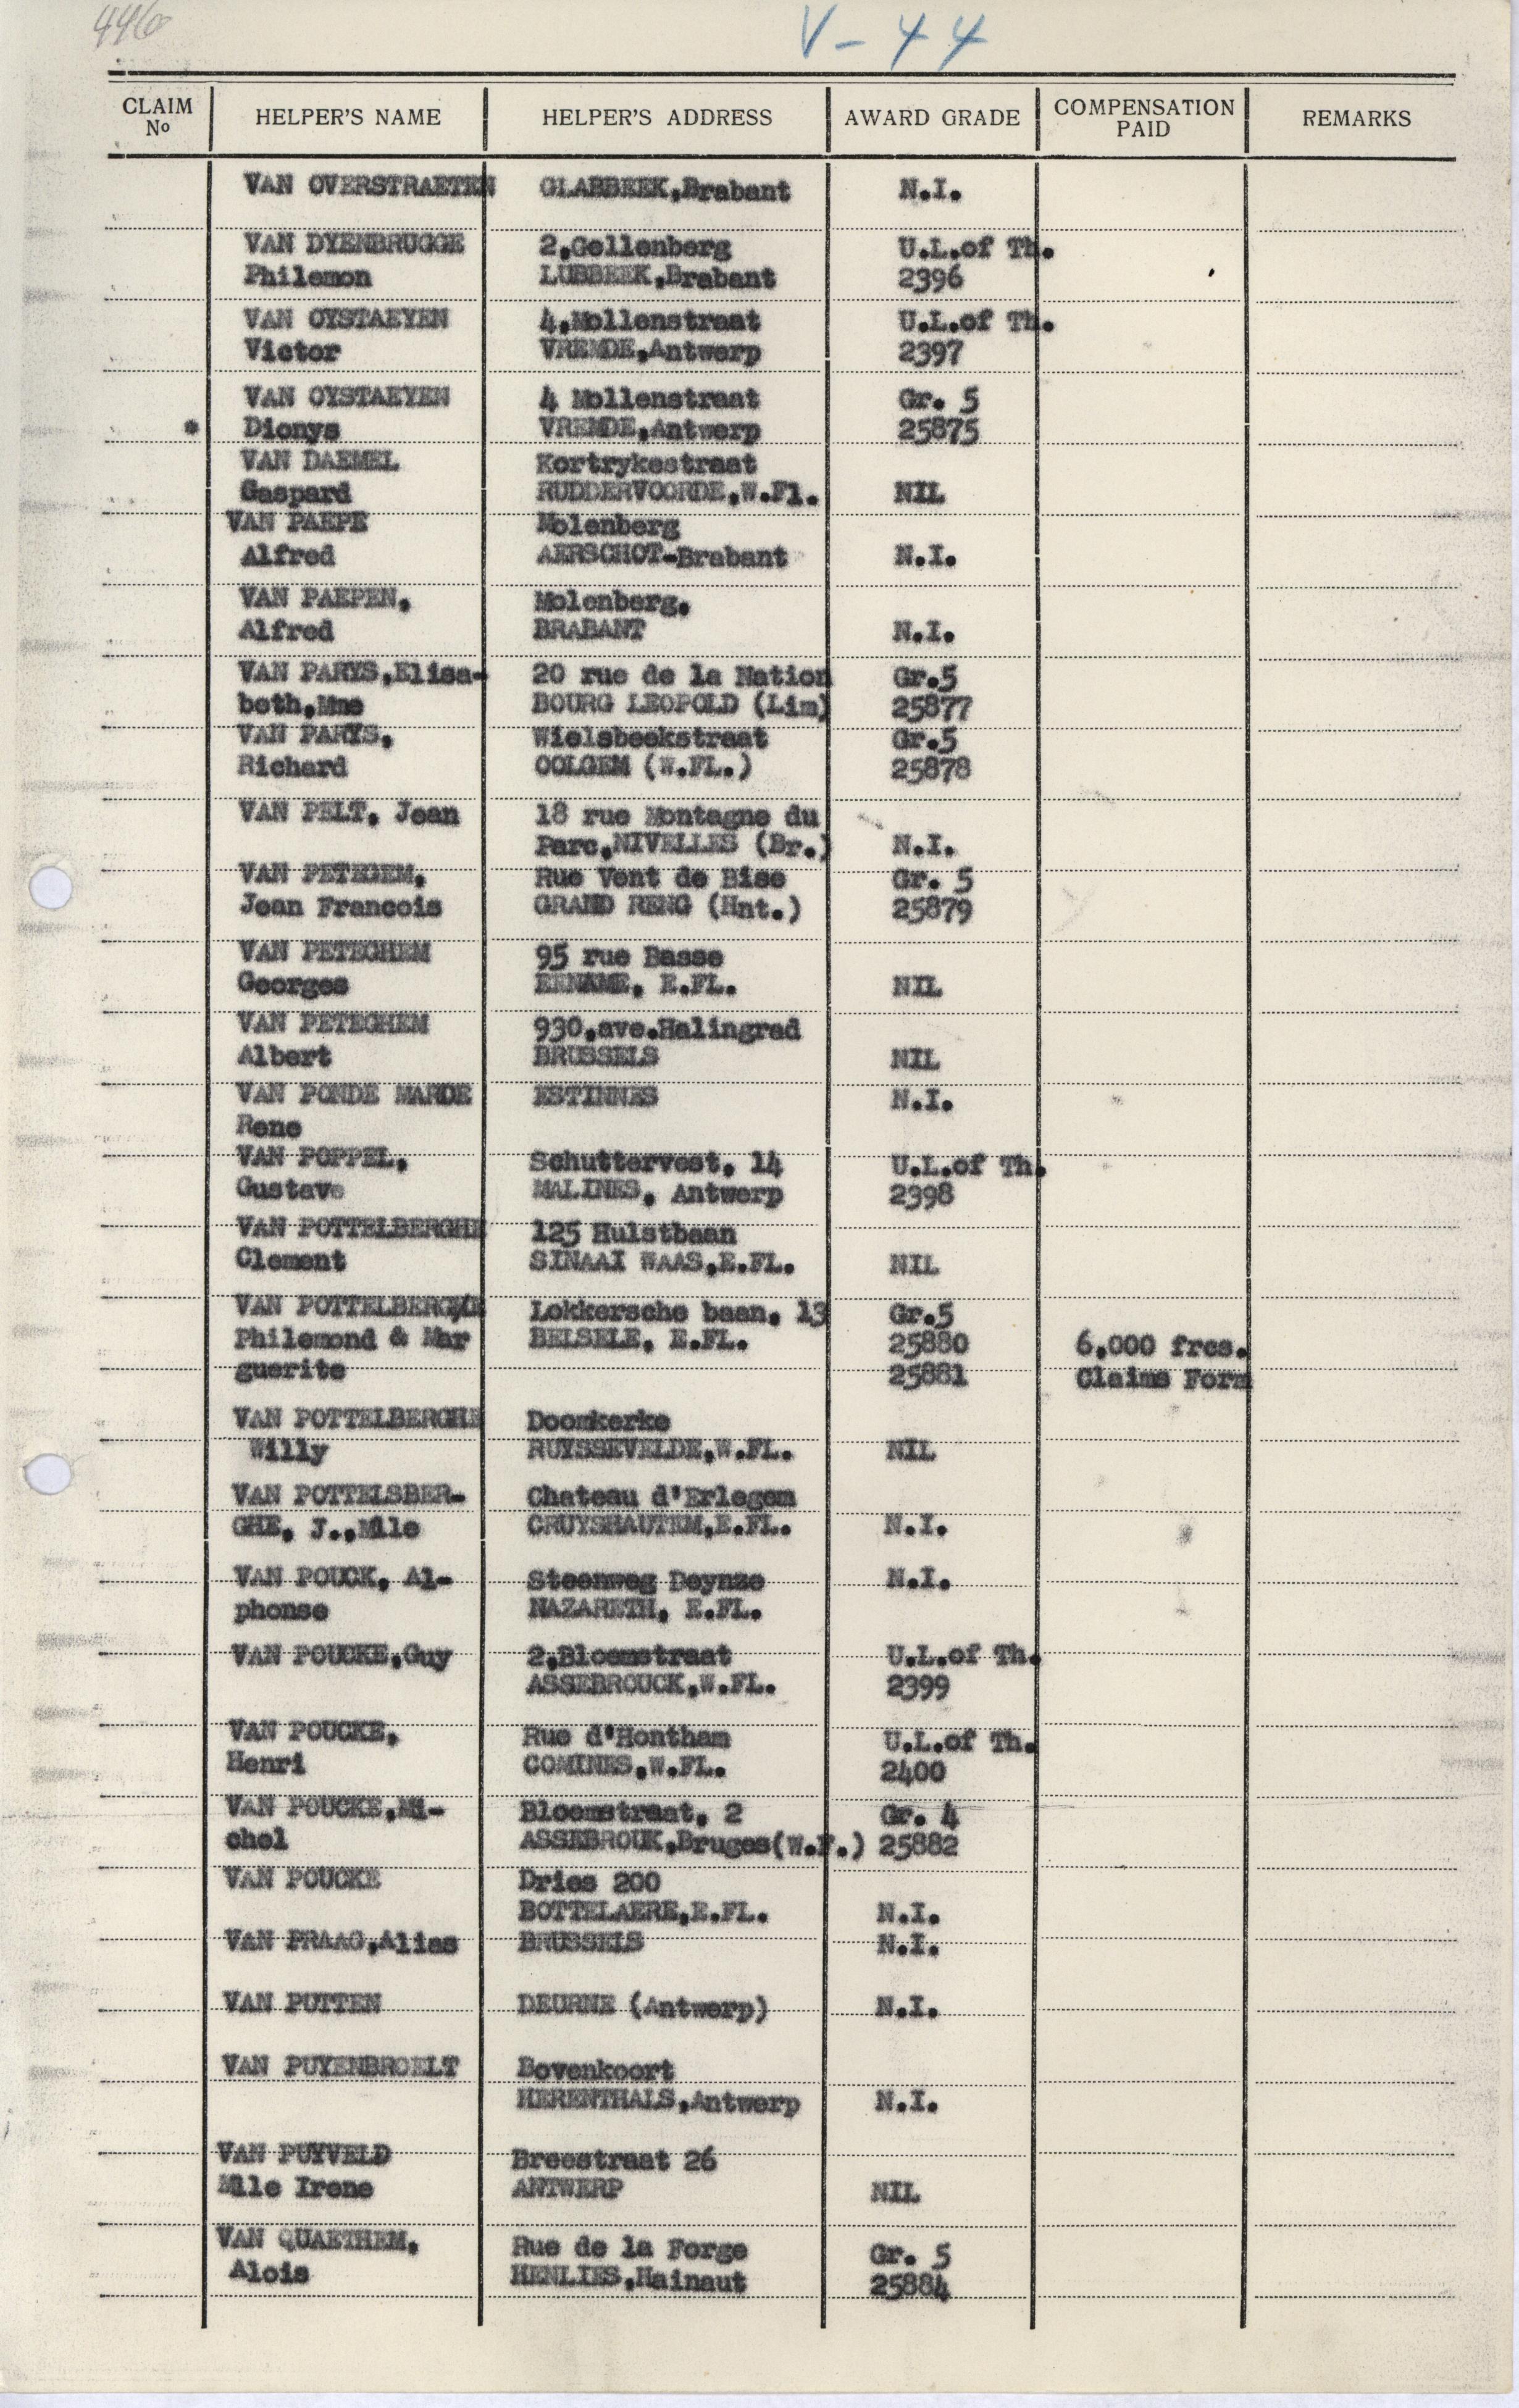 446
V-44
CLAIM No HELPER'S NAME HELPER'S ADDRESS AWARD GRADE COMPENSATION PAID REMARKS
VAN OVERSTRAETEN GLABBEEK,Brabant N.I.
VAN DYENBRUGGE 2,Gellenberg U.L.of Th.
Philemon LUBBEEK,Brabant 2396
VAN OYSTAEYEN 4,Mollenstraat U.L.of Th.
Victor VREMDE,Antwerp 2397
VAN OYSTAEYEN 4 Mollenstraat Gr. 5
* Dionys VREMDE,Antwerp 25875
VAN DAEMEL Kortrykestraat
Gaspard RUDDERVOORDE,W.Fl. NIL
VAN PAEPE Molenberg
Alfred AERSCHOT-Brabant N.I.
VAN PAEPEN, Molenberg.
Alfred BRABANT N.I.
VAN PARYS,Elisa- 20 rue de la Nation Gr.5
beth,Mme BOURG LEOPOLD (Lim) 25877
VAN PARYS, Wielsbeekstraat Gr.5
Richard OOLGEM (W.FL.) 25878
VAN PELT, Jean 18 rue Montagne du
Parc,NIVELLES (Br.) N.I.
VAN PETEGEM, Rue Vent de Bise Gr. 5
Jean Francois GRAND RENG (Hnt.) 25879
VAN PETEGHEM 95 rue Basse
Georges EENAME, E.FL. NIL
VAN PETEGHEM 930,ave.Halingrad
Albert BRUSSELS NIL
VAN PONDE MARDE ESTINNES N.I.
Rene
VAN POPPEL, Schuttervest, 14 U.L.of Th.
Gustave MALINES, Antwerp 2398
VAN POTTELBERGHE 125 Hulstbaan
Clement SINAAI WAAS,E.FL. NIL
VAN POTTELBERGE Lokkersche baan, 13 Gr.5
Philemond & Mar BELSELE, E.FL. 25880 6,000 frcs.
guerite 25881 Claims Form
VAN POTTELBERGHE Doomkerke
Willy RUYSSEVELDE,W.FL. NIL
VAN POTTELSBER- Chateau d'Erlegem
GHE, J.,Mlle CRUYSHAUTEM,E.FL. N.I.
VAN POUCK, Al- Steenweg Deynze N.I.
phonse NAZARETH, E.FL.
VAN POUCKE,Guy 2,Bloemstraat U.L.of Th.
ASSEBROUCK,W.FL. 2399
VAN POUCKE, Rue d'Hontham U.L.of Th.
Henri COMINES,W.FL. 2400
VAN POUCKE,Mi- Bloemstraat, 2 Gr. 4
chel ASSEBROUK,Bruges(W.F.) 25882
VAN POUCKE Dries 200
BOTTELAERE,E.FL. N.I.
VAN PRAAG,Alias BRUSSELS N.I.
VAN PUTTEN DEURNE (Antwerp) N.I.
VAN PUYENBROELT Bovenkoort
HERENTHALS,Antwerp N.I.
VAN PUYVELD Breestraat 26
Mlle Irene ANTWERP NIL
VAN QUAETHEM, Rue de la Forge Gr. 5
Alois HENLIES,Hainaut 25884